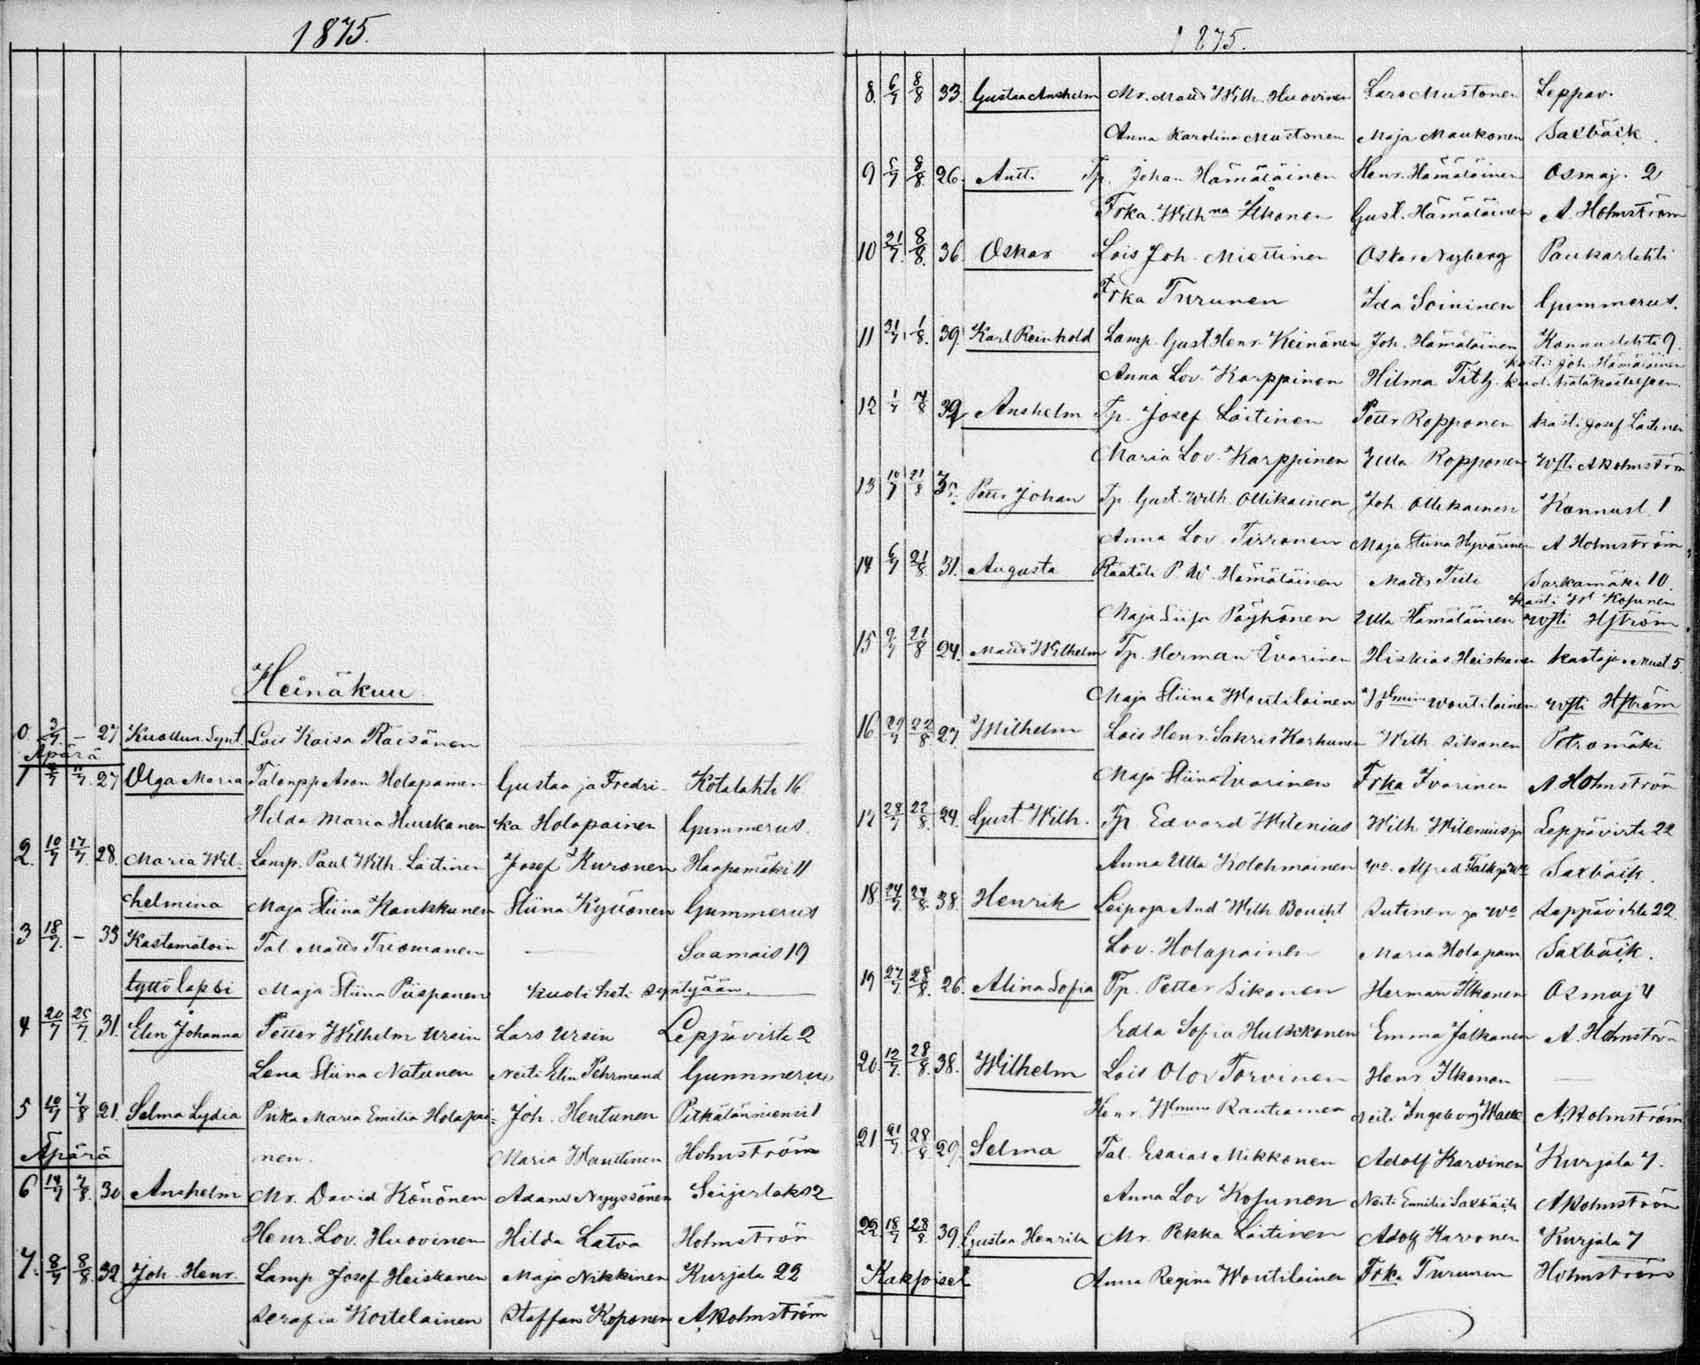 1875.
Heinäkuu
0 3/7 - 27 Kuollun. Synt. Lois Kaisa Räisänen
Äpärä
1 27 Olga Maria Talonpp Aron Holopainen Gustaa ja Fredri- Kotalahti 16
Hilda Maria Huuskanen ka Holopainen Gummerus.
2. 10/7 17/7 28. Maria Wil- Lamp. Paul Wilh. Laitinen Josef Kuronen Haapamäki 11
helmina Maja Stiina Kaukkunen Stiina Kytönen Gummerus
3 18/7 - 33 Kastamatoin Tal. Matts Saamais 19
tyttölapsi Maja Stiina Piispanen kuoli heti syntyään
4 20/7 25/7 31. Elin Johanna Petter Wilhelm Ursin Lars Ursin Leppävirta 2
Lena Stiina Natunen Neiti Elin Pehrmand Gummerus
5 10/7 7/8 21. Selma Lydia Piika Maria Emilia Holopai- Joh. Hentunen Pitkälänniemi 1
Äpärä
nen. Maria Wanttinen Holmström
6 14/7 7/8 30 Anshelm Mr. David Könönen Adam Nyyssönen Seijerlaks 2
Henr. Lov. Huovinen Hilda Latva Holmström
7. 8/7 8/8 32 Joh. Henr. Lamp Josef Heiskanen Maja Nikkinen Kurjala 22
Serafia Koitelainen Staffan Koponen A Holmström
1875.
8. 6/7 8/8 33. Gustaa Anshelm Mr. Matts Wilh. Huovinen Lars Mustonen Leppäv.
Anna Karolina Mustonen Maja Maukonen Saxbäck.
9 5/7 8/8 26. Antti Tp. Johan Hämäläinen Henr. Hämäläinen Osmaj. 2
Frka Wilhna Ilkonen Gust. Hämäläinen A. Holmström
10 21/7 8/8 36. Oskar Lois Joh. Miettinen Oskar Nyberg Paukarlahti
Frka Turunen Ida Soininen Gummerus.
11 31/7 1/8 39 Karl Reinhold Lamp. Gust. Henr. Keinänen Joh. Hämäläinen Konnuslahti 9.
kasti Joh. Hämäläinen
Anna Lov. Karppinen Hilma Titz
12 1/7 14/8 39 Anshelm Tp. Josef Laitinen Petter Ropponen kasti Josef Laitinen
Maria Lov. Karppinen Ulla Ropponen wfti A Holmström
13 10/7 21/8 Petter Johan Tp. Gust. Wilh. Ollikainen Joh. Ollikainen Konnusl. 1
Anna Lov. Tirronen Maja Stiina Hyvärinen A Holmström
14 6/7 21/8 31. Augusta Räätäli P. W. Hämäläinen Matts Tuli Sarkamäki 10.
kasti Kosunen
Maja Liisa Pöyhönen Ulla Hämäläinen wfti Hström
15 9/7 21/8 24. Matts Wilhelm Tp. Herman Ivarinen Hiskias Heiskanen Must. 5
Maja Stiina Woutilainen Wilhmina Woutilainen wfti Hström
16 29/7 22/8 27. Wilhelm Lois Henr. Sakris Karhunen Wilh. Sikanen Petromäki
Maja Stiina Ivarinen Frka Ivarinen A Holmström
17 28/7 22/8 24. Gust Wilh. Tp. Edvard Wilenius Wilh Wilenius ja Leppävirta 22
Anna Ulla Kolehmainen Wo. Alfred Falk ja Wo Saxbäck.
18. 24/7 24/8 38. Henrik Leipoja And Wilh Boucht Sutinen ja Wo Leppävirta 22
Lov. Holopainen Maria Holopain Saxbäck.
19 27/7 28/8 26. Alina Sofia Tp. Petter Sikonen Herman Ilkonen Osmaj 4
Edla Sofia Hulkkonen Emma Jalkanen A. Holmström
20. 12/7 28/8 38. Wilhelm Lois Olov Torvinen Henr. Ilkonen
Henr. Wmiina Rautiainen Neiti Ingeborg A. Holmström
21 21/7 28/8 29. Selma Tal. Esaias Mikkonen Adolf Karvinen Kurjala 7.
Anna Lov Kosunen Neiti Emilia Saxbäck A Holmström
22 18/7 28/8 39. Gustaa Henrik Mr. Pekka Laitinen Adolf Karvonen Kurjala 7
Kakjoiset Anna Regina Woutilainen Frka Turunen Holmström